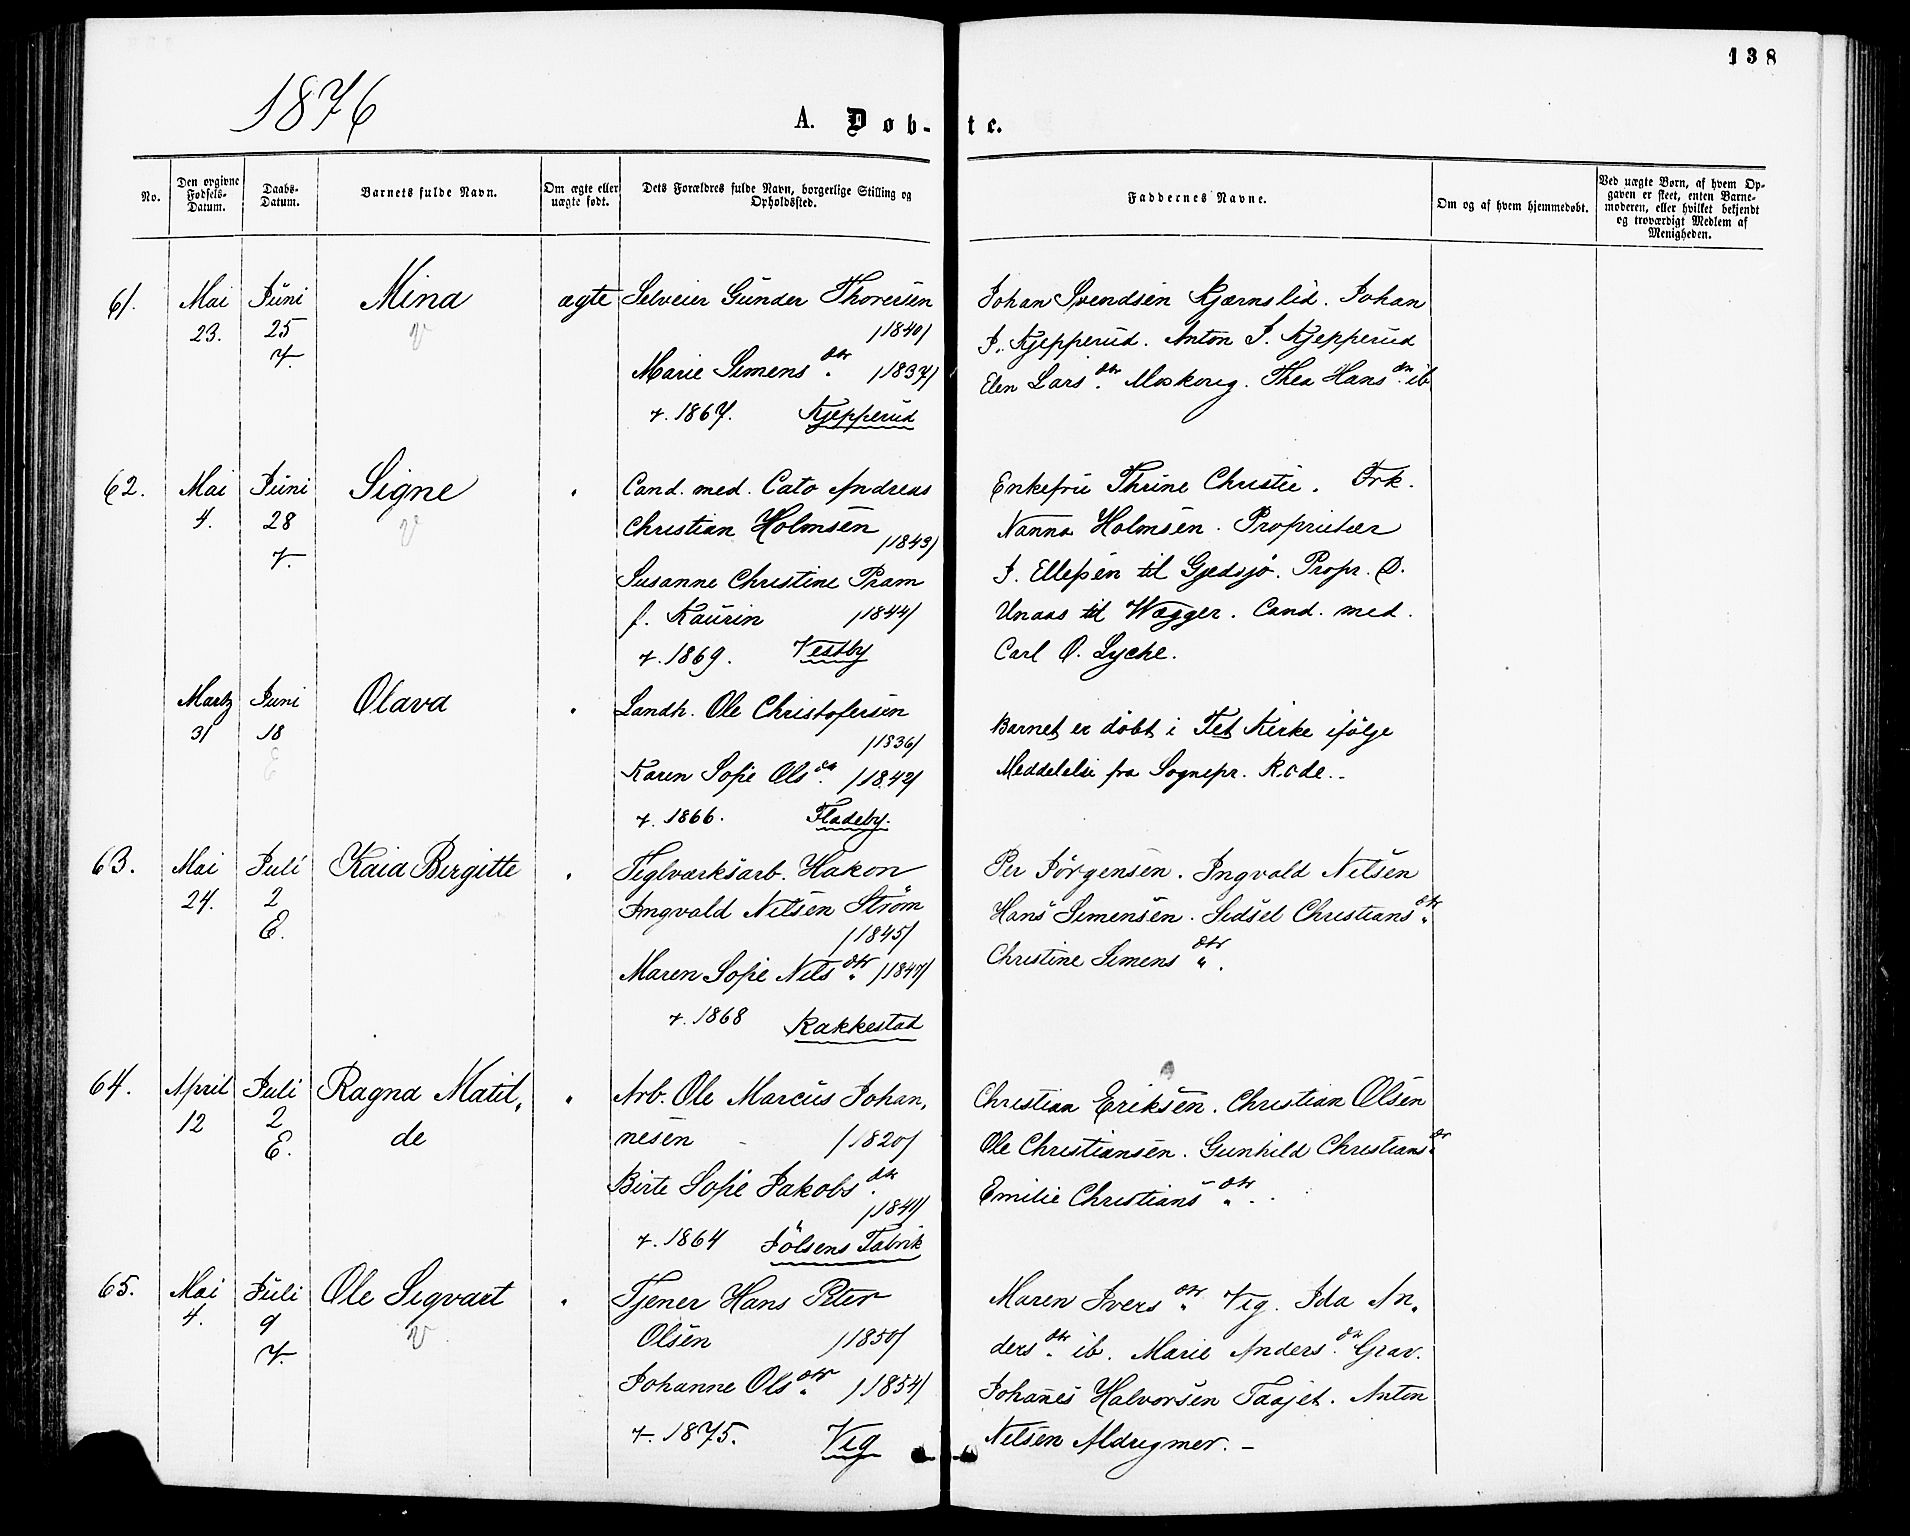 138
1876
A. Døb-te.
No.
Den opgivne Fødsels-Datum.
Daabs-Datum.
Barnets fulde Navn.
Om ægte eller uægte født.
Dets Forældres fulde Navn, borgerlige Stilling og Opholdssted.
Faddernes Navne.
Om og af hvem hjemmedøbt.
Ved uægte Børn, af hvem Opgaven er skeet, enten Barnemoderen, eller hvilket bekjendt og troværdigt Medlem af Menigheden.
61.
Mai
23.
Juni
25
V.
Mina
V
ægte
Selveier Gunder Thoresen
/1840/
Marie Simens dtr. /1837/
v. 1867. Kjepperud
Johan Svendsen Kjærnslid. Johan
J. Kjepperud. Anton J. Kjepperud
Elen Lars dtr. Moskovig. Thea Hans dtr. ib
62.
Mai
4.
Juni
28
V.
Signe
V
"
Cand. med. Cato Andreas
Christian Holmsen
/1843/
Susanne Christine Pram
f. Kaurin /1844/
v. 1869. Vestby
Enkefru Thrine Christie. Frk.
Nanna Holmsen. Proprietær
J. Ellefsen til Gjedsjø. Propr. O.
Unaas til Wagger. Cand. med.
Carl O. Lyche.
Martz
31
Juni
18
E
Olava
"
Landh. Ole Christofersen
/1836/
Karen Sofie Ols dtr. /1842/
v. 1866. Fladeby.
Barnet er døbt i Fet Kirke ifølge
Meddelelse fra Sognepr. Rode. -
63.
Mai
24.
Juli
2
E.
Kaia Birgitte
"
Teglværksarb. Hakon
Ingvald Nilsen Strøm
/1845/
Maren Sofie Nils dtr. /1847/
v. 1868 Rakkestad
Per Jørgensen. Ingvald Nilsen
Hans Simensen. Sidsel Christians dtr.
Christine Simens dtr.
64.
April
12
Juli
2
E.
Ragna Matil,
de
"
Arb. Ole Marcus Johan,
nesen - /1820/
Birte Sofie Jakobs dtr.
/1841/
v. 1864 Jølsens Fabrik
Christian Eriksen. Christian Olsen
Ole Christiansen. Gunhild Christians dtr.
Emilie Christians dtr. -
65.
Mai
4.
Juli
9
V.
Ole Sigvart
V
"
Tjener Hans Peter
Olsen /1850/
Johanne Ols dtr. /1854/
v. 1875. Vig
Maren Ivers dtr. Vig. Ida An,
ders dtr. ib. Marie Anders dtr. Grav.
Johañes Halvorsen Taajet. Anton
Nilsen Aldrigmer. -